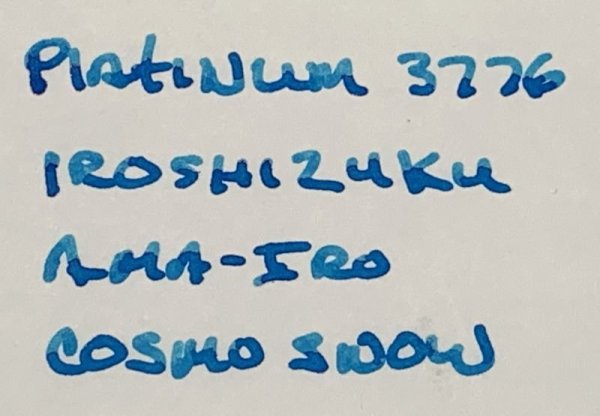 PLATINUM 3776
IROSHIZUKU
AMA-IRO
COSMO SNOW